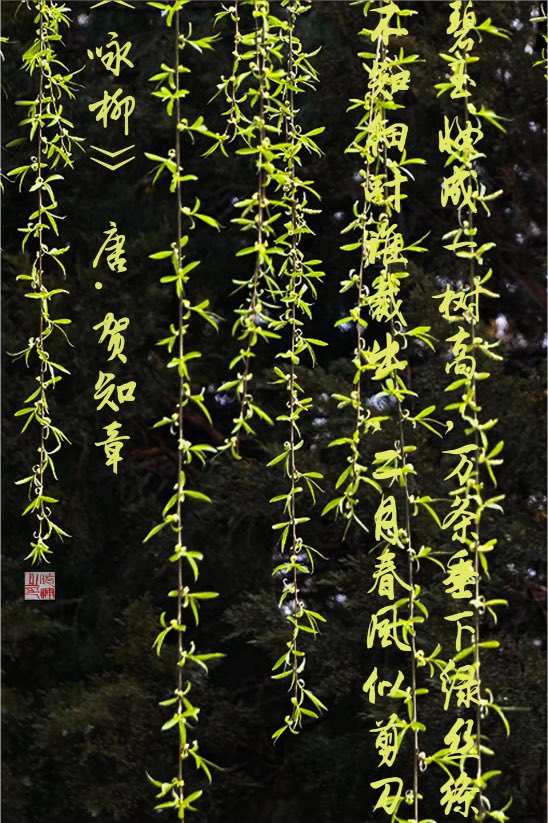 碧玉妆成一树高,万条垂下绿丝绦
不知细叶谁裁出,二月春风似剪刀
《咏柳》 唐·贺知章